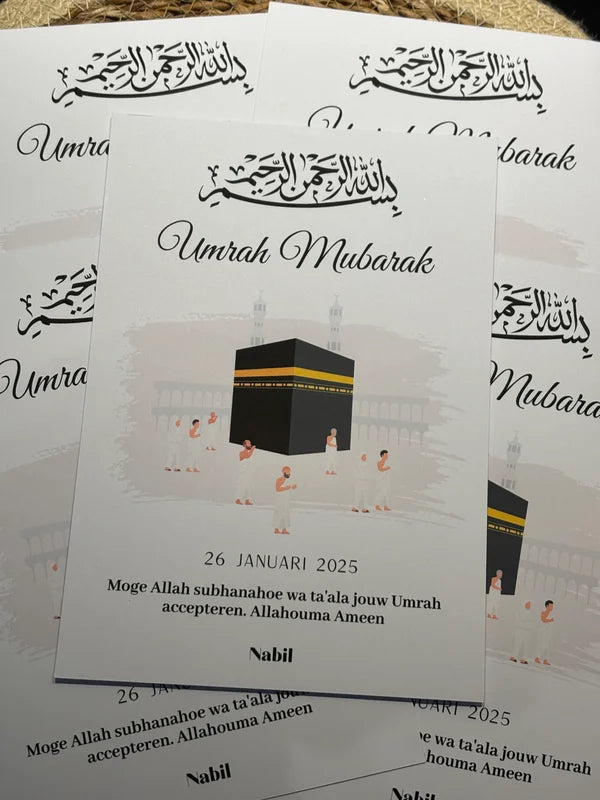 بسم الله الرحمن الرحيم
Umra
بسم الله الرحمن الرحيم
Umrah Mubarak
بسم الله الرحمن الرحيم
Umrah Mubarak
26 JANUARI 2025
Moge Allah subhanahoe wa ta'ala jouw Umrah
accepteren. Allahouma Ameen
Nabil
Umra
26 JAN
Moge Allah subhanahoe wa ta'ala jou
accepteren. Allahouma Ameen
Nabil
الله الرحمن
Mubara
NUARI 2025
oe wa ta'ala jouw Umrah
houma Ameen
Nabil